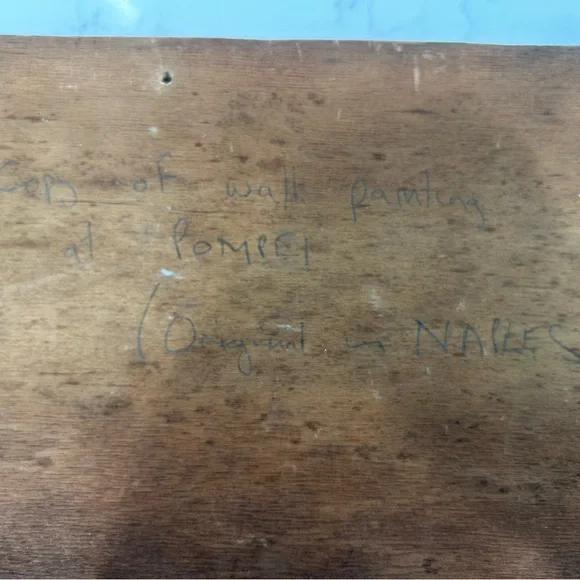 Copy of wall painting
at POMPEI
(Original in NAPLES